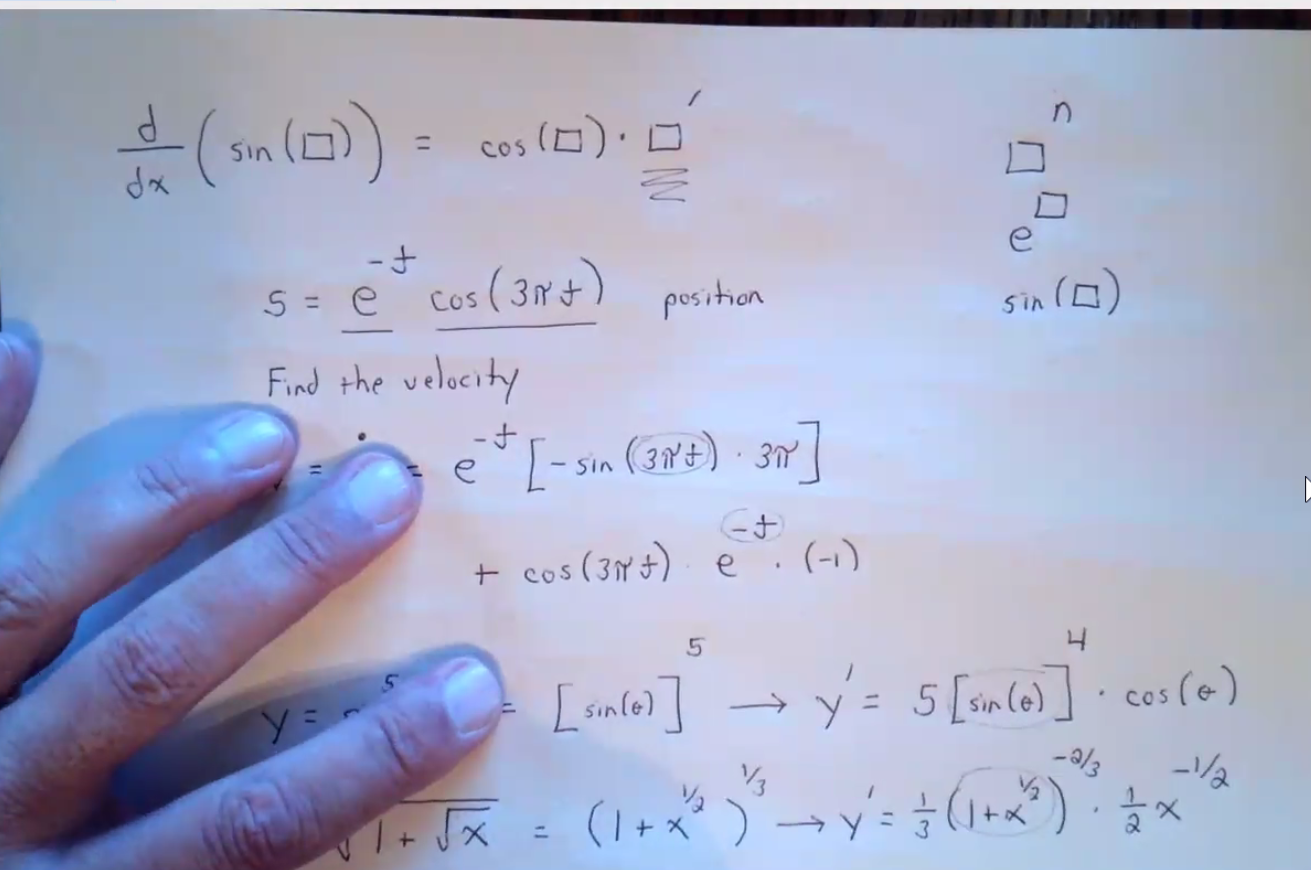 d/dx (sin(□)) = cos(□) · □′
□ⁿ
e^□
sin(□)
s = e^(-t) cos(3πt) position
Find the velocity
= = e^(-t) [-sin(3πt) · 3π]
+ cos(3πt) · e^(-t) · (-1)
y = ⁵ = [sin(θ)]⁵ → y′ = 5[sin(θ)]⁴ · cos(θ)
√(1 + √x) = (1 + x^(1/2))^(1/3) → y′ = 1/3 (1 + x^(1/2))^(-2/3) · 1/2 x^(-1/2)